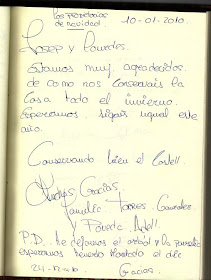 los pastores
de navidad 10-01-2010.
Josep y Lourdes.
Estamos muy agradecidos
de como nos conservais la
casa todo el invierno.
Esperamos seguir igual este
año.
Conservando bien el Castell.
Muchas Gracias.
Familia Torres Gonzalez
y
P.D. te dejamos el arbol y la
esperamos el dia
Gracias.